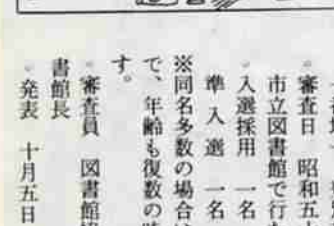 ◦審査日　昭和五十
市立図書館で行な
◦入選採用　一名
準入選　一名
※同名多数の場合は
で、年齢も復数の時
す。
◦審査員　図書館協
書館長
◦発表　十月五日